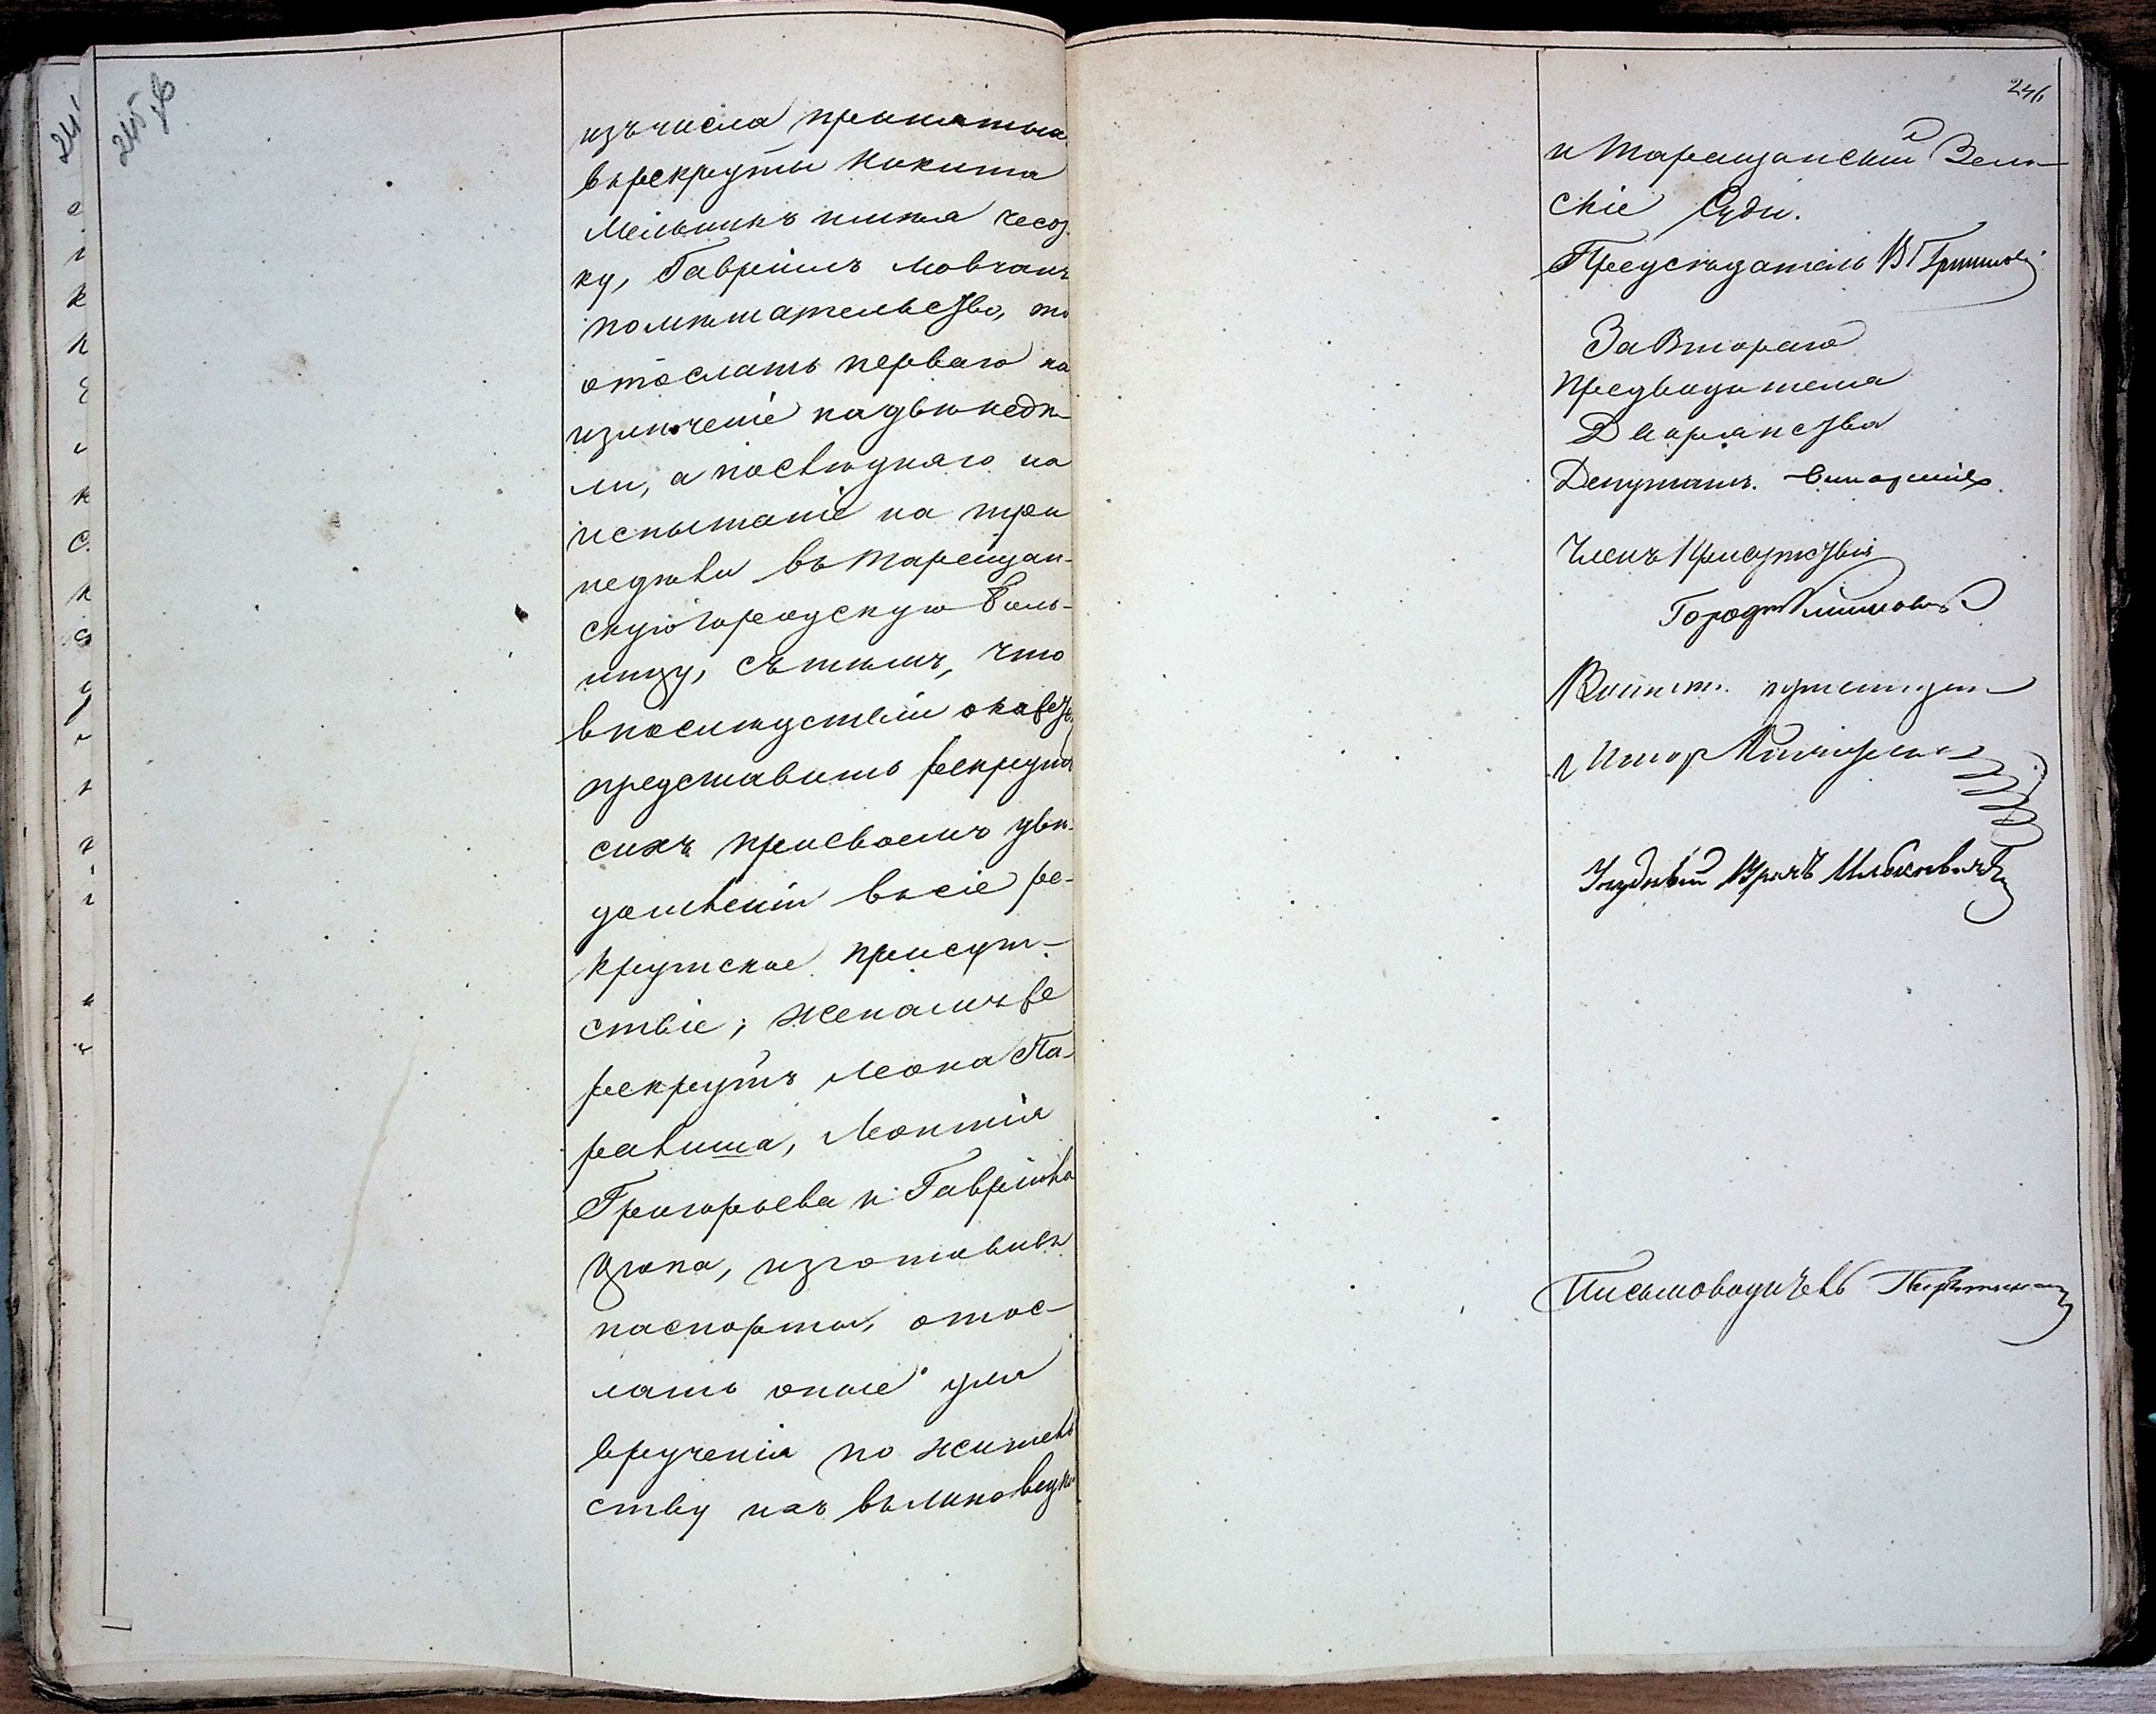 245 об
изъ числа принятыхъ
въ рекруты Никита
Мельникъ имѣя чесот
ку, Гавріилъ Мовчанъ
помѣшательство, то
отослать перваго на
излѣченіе на двѣ недѣ-
ли, а послѣдняго на
испытаніе на три
недѣли въ Таращан-
скую городскую боль-
ницу, съ тѣмъ, что
впослѣдствіи окажетъ
представить рекрутъ
сихъ при своемъ увѣ-
домленіи въ сіе ре-
крутское присут-
ствіе; женамъ же
рекрутъ Леона Па-
Леонтія
Григорьева и Гавріила
изготовивъ
паспорты, отос-
лать оные для
врученія по житель
ству ихъ въ Липовецкій
246
и Таращанскій Зем-
скіе Суды.
Предсѣдатель
За Втораго
Предводителя
Дворянства
Депутатъ
Членъ Присутствія
Городн.
Военный
Маіоръ
Уѣздный Врачъ
Письмоводитель